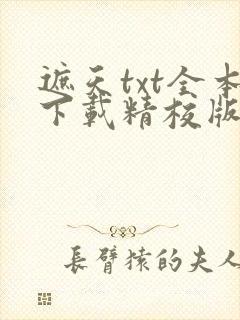 遮天txt全本
下載精校版
長臂猿的夫人